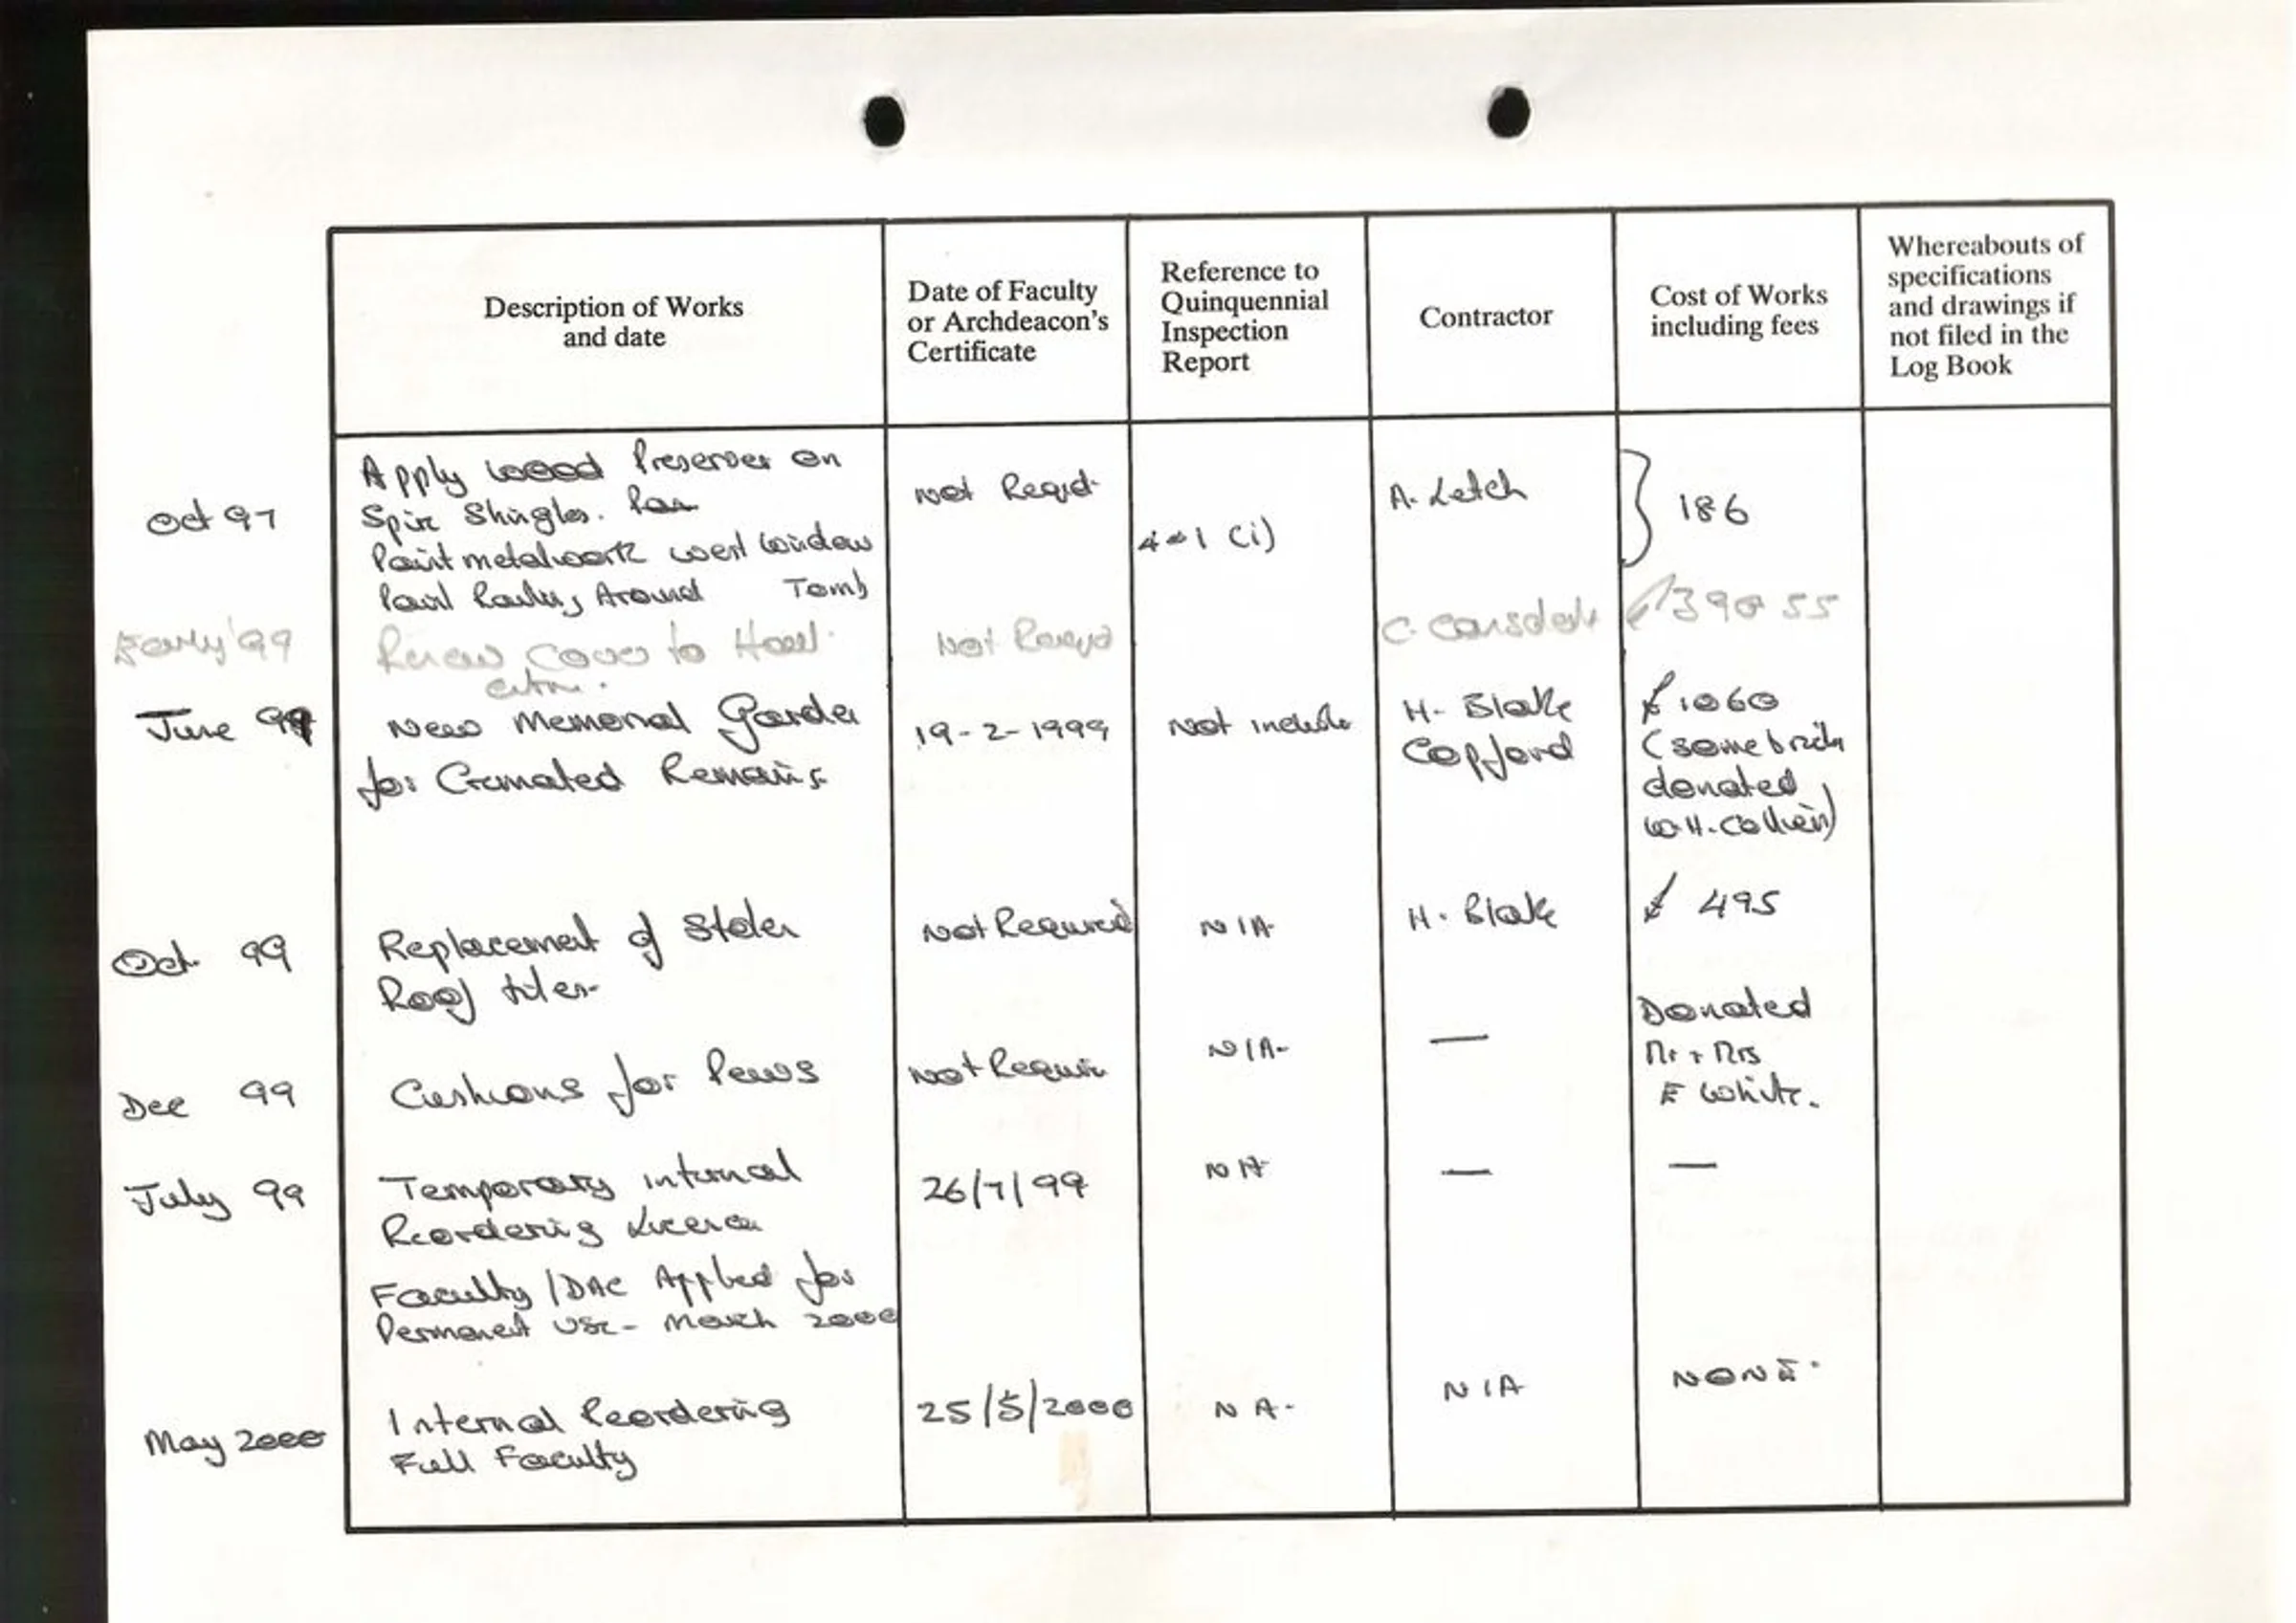 Description of Works
and date
Date of Faculty
or Archdeacon's
Certificate
Reference to
Quinquennial
Inspection
Report
Contractor
Cost of Works
including fees
Whereabouts of
specifications
and drawings if
not filed in the
Log Book
Oct 97
Apply wood Preserver on
Spire Shingles.
Paint metalwork west window
Paint Railing Around Tomb
Not Reqd.
4.1 (i)
A. Letch
186
Early '99
Renew Cover to
Not Reqd
C.
390 55
June 99
New Memorial Garden
for Cremated Remains
19-2-1999
Not include
H. Blake
Copford
£1060
(some brick
donated
W.H. Collier)
Oct 99
Replacement of Stolen
Roof tiles
Not Required
N/A
H. Blake
£ 495
Dec 99
Cushions for Pews
Not Requir
N/A
—
Donated
Mr + Mrs
E White.
July 99
Temporary internal
Reordering Licence
26/7/99
N A
—
—
Faculty / DAC Applied for
Permanent use - March 2000
May 2000
Internal Reordering
Full Faculty
25/5/2000
N A-
N/A
NONE.